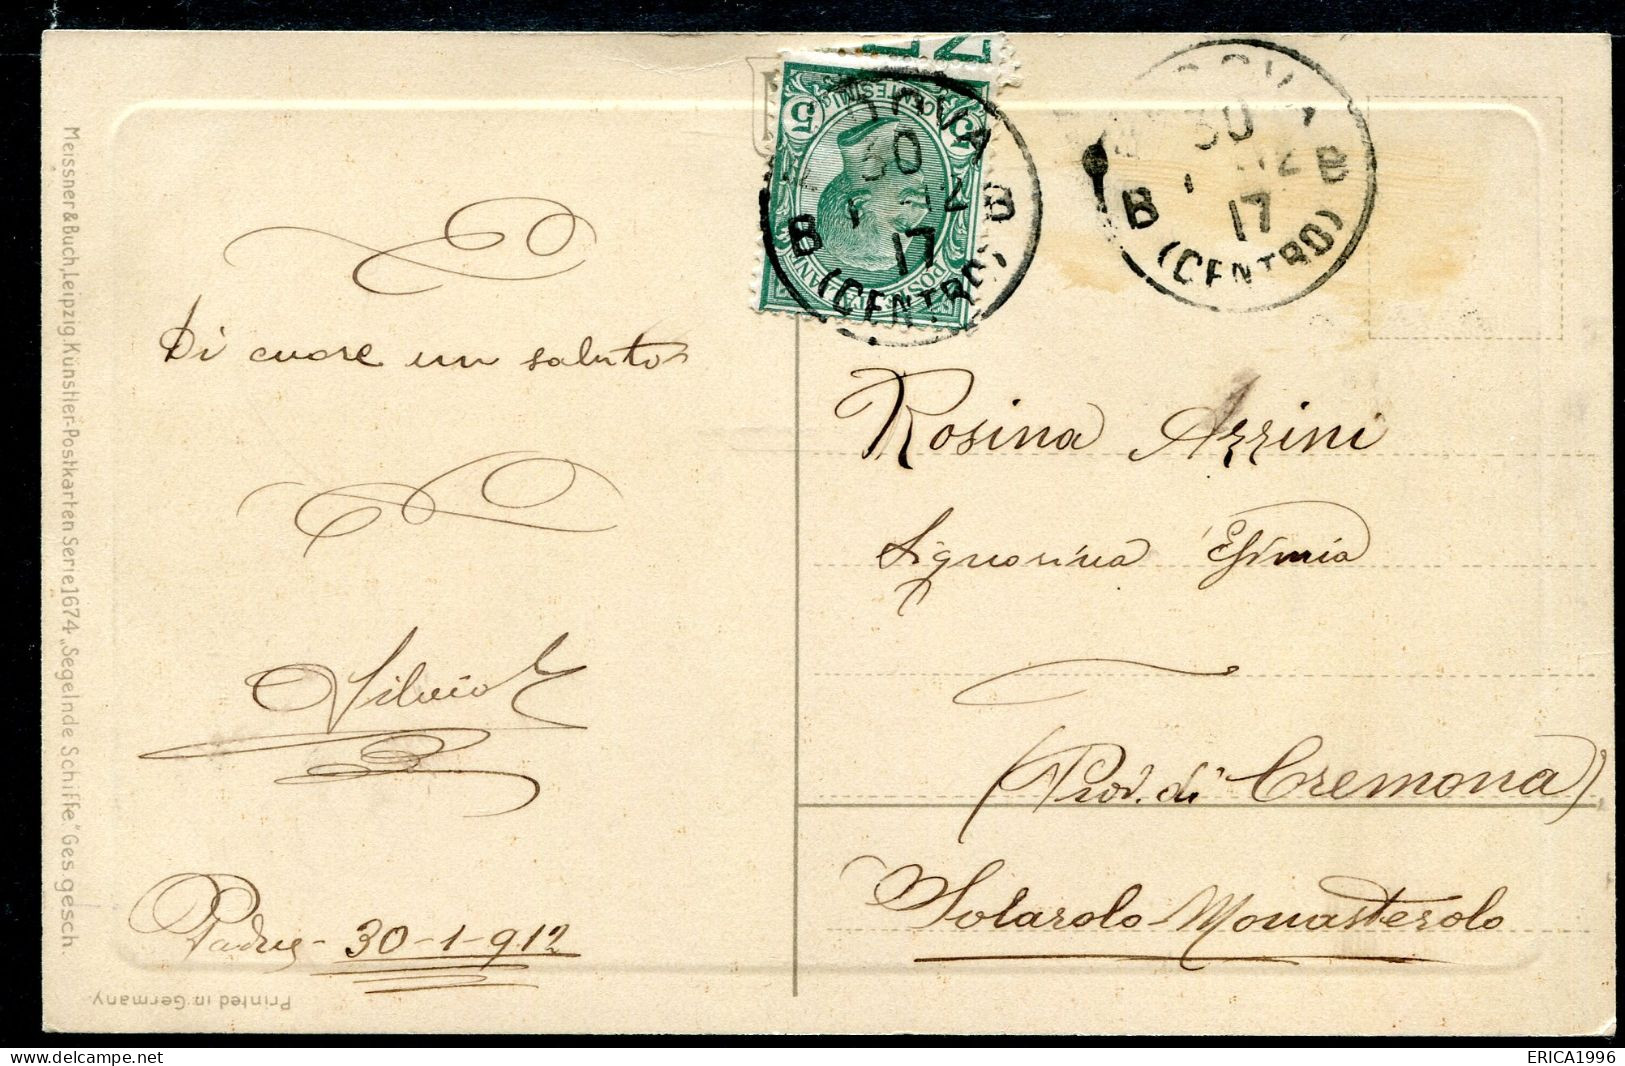 Di cuore un saluto
Silvio
30-1-912
Rosina Azzini
Signorina Efimia
(Prov. di Cremona)
Solarolo Monasterolo
5
5
CENTESIMI
POSTE ITALIANE
30
12
17
B B
(CENTRO)
30
12
17
B B
(CENTRO)
Meissner & Buch, Leipzig. Künstler-Postkarten Serie 1674 „Segelnde Schiffe." Ges. gesch.
Printed in Germany
ERICA1996